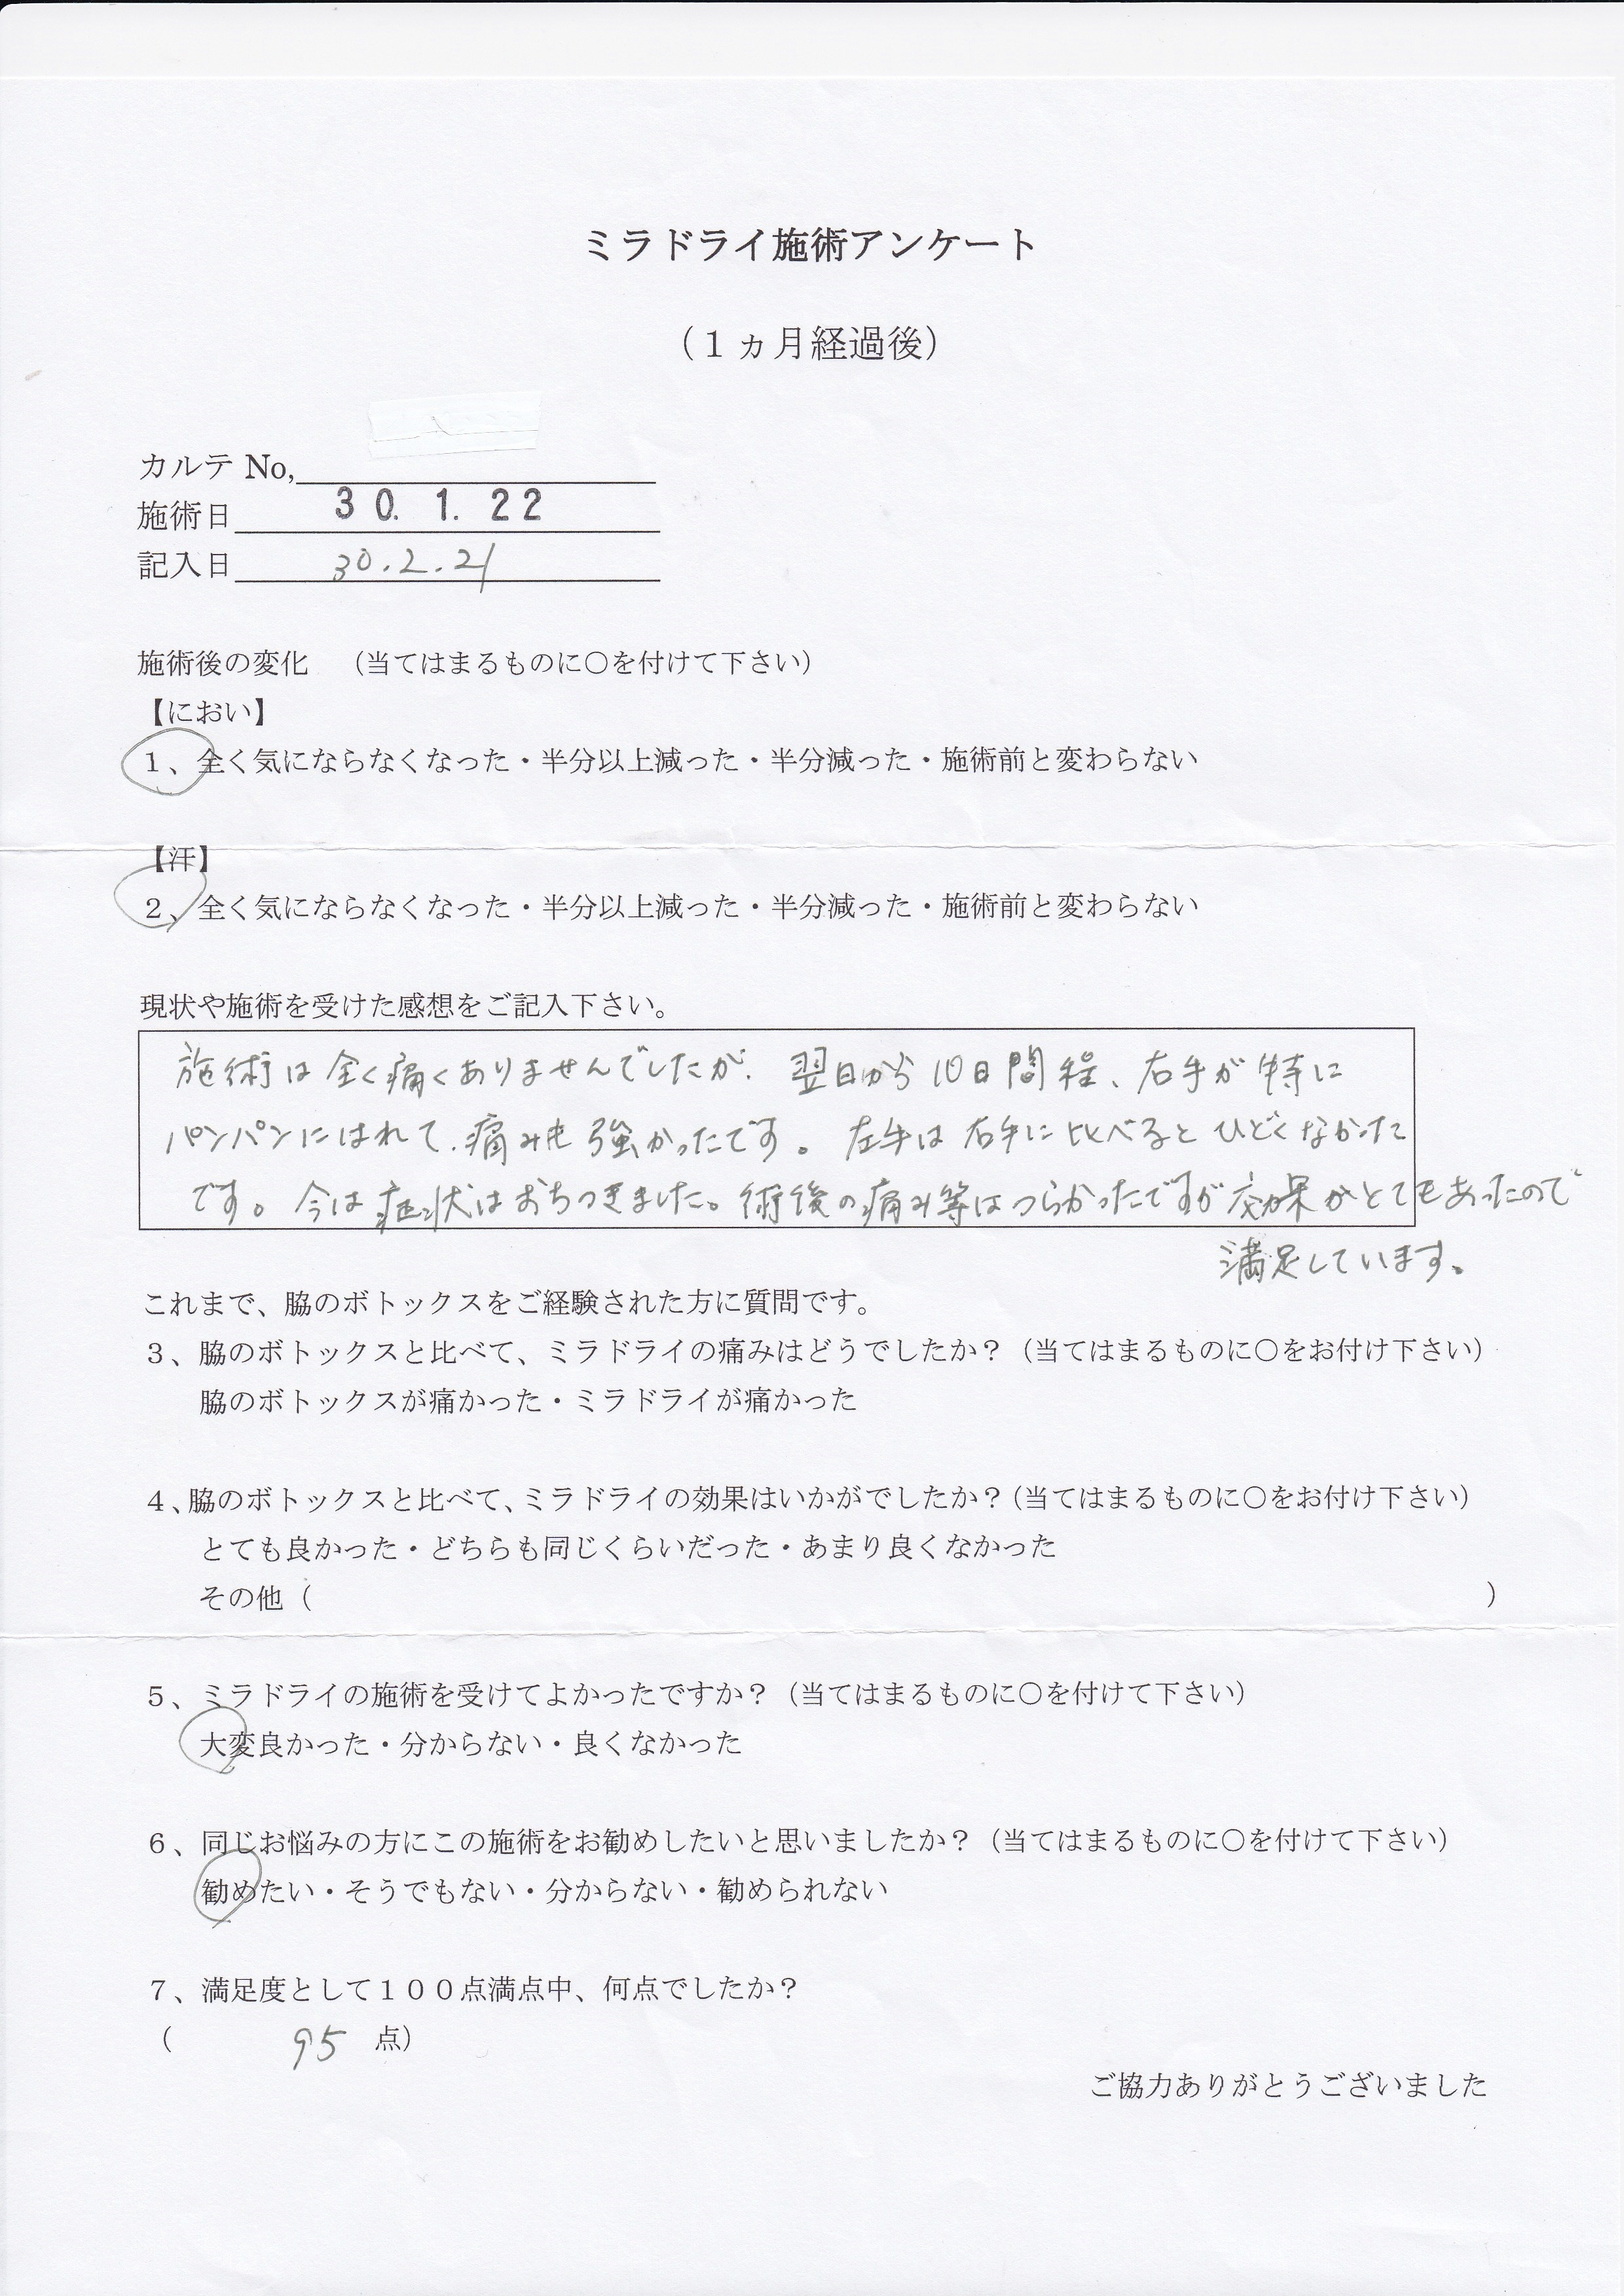 ミラドライ施術アンケート
（１ヵ月経過後）
カルテ No,
施術日 30. 1. 22
記入日 30.2.21
施術後の変化　（当てはまるものに〇を付けて下さい）
【におい】
１、全く気にならなくなった・半分以上減った・半分減った・施術前と変わらない
【汗】
２、全く気にならなくなった・半分以上減った・半分減った・施術前と変わらない
現状や施術を受けた感想をご記入下さい。
施術は全く痛くありませんでしたが、翌日から10日間程、右手が特に
パンパンにはれて、痛みも強かったです。左手は右手に比べるとひどくなかった
です。今は症状はおちつきました。術後の痛み等はつらかったですが効果がとてもあったので
満足しています。
これまで、脇のボトックスをご経験された方に質問です。
３、脇のボトックスと比べて、ミラドライの痛みはどうでしたか？（当てはまるものに〇をお付け下さい）
脇のボトックスが痛かった・ミラドライが痛かった
４、脇のボトックスと比べて、ミラドライの効果はいかがでしたか？（当てはまるものに〇をお付け下さい）
とても良かった・どちらも同じくらいだった・あまり良くなかった
その他（　　　　　）
５、ミラドライの施術を受けてよかったですか？（当てはまるものに〇を付けて下さい）
大変良かった・分からない・良くなかった
６、同じお悩みの方にこの施術をお勧めしたいと思いましたか？（当てはまるものに〇を付けて下さい）
勧めたい・そうでもない・分からない・勧められない
７、満足度として１００点満点中、何点でしたか？
（　　95　点）
ご協力ありがとうございました